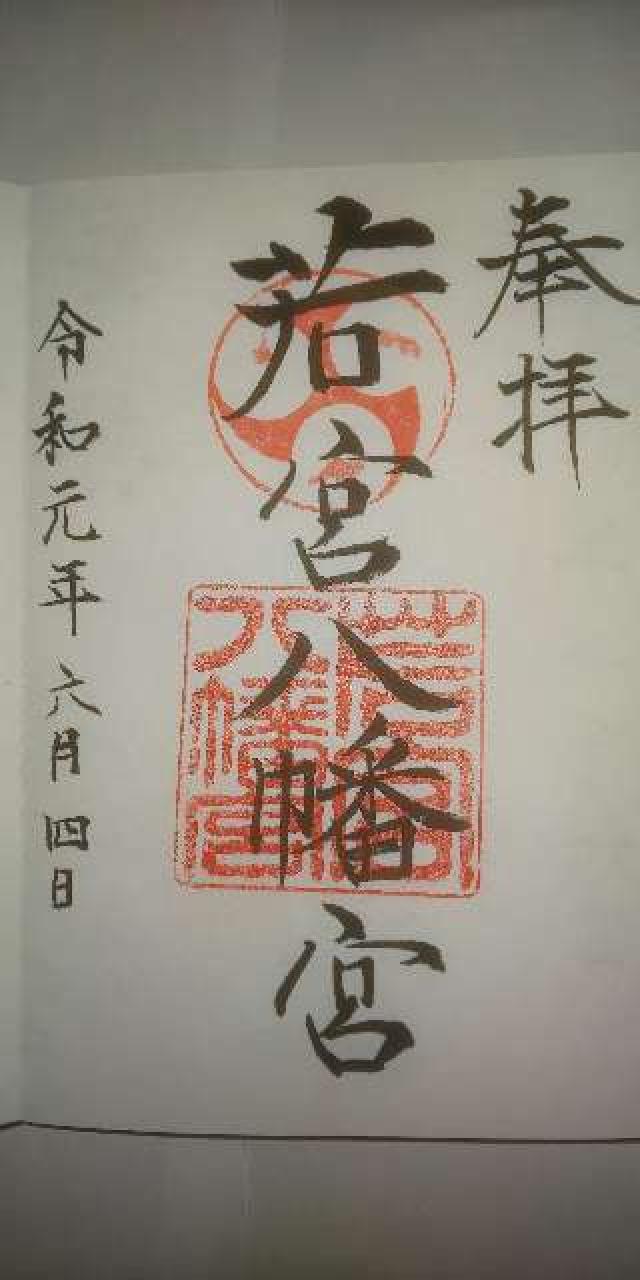 奉拝
若宮八幡宮
若宮八幡宮
令和元年六月四日